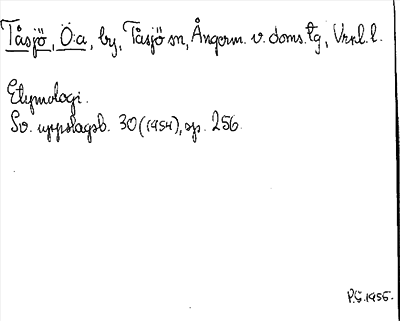 Tåsjö, Ö:a, by, Tåsjö sn, Ångerm. v. doms. tg, Vrnl. l.
Etymologi.
Sv. uppslagsb. 30 (1954), sp. 256.
P.G. 1955.